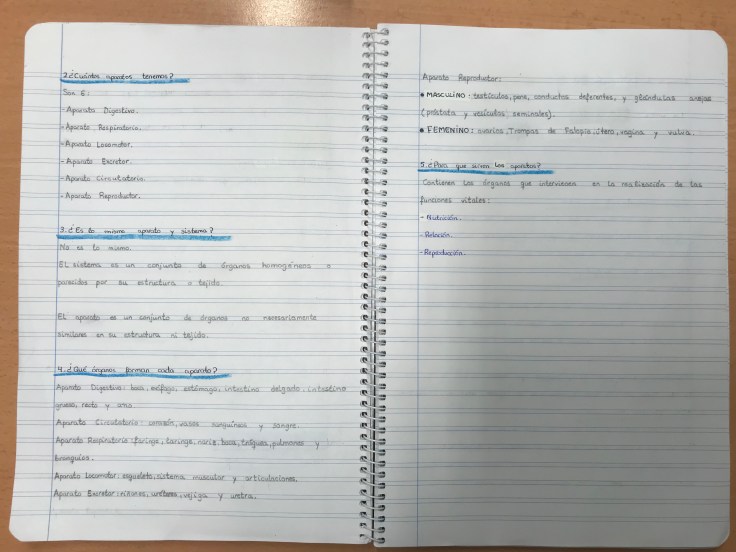 2.¿Cuántos aparatos tenemos?
Son 6:
-Aparato Digestivo.
-Aparato Respiratorio.
-Aparato Locomotor.
-Aparato Excretor.
-Aparato Circulatorio.
-Aparato Reproductor.
3.¿Es lo mismo aparato y sistema?
No es lo mismo.
EL sistema es un conjunto de órganos homogéneos o
parecidos por su estructura o tejido.
EL aparato es un conjunto de órganos no necesariamente
similares en su estructura ni tejido.
4.¿Qué órganos forman cada aparato?
Aparato Digestivo: boca, esófago, estómago, intestino delgado, intestino
grueso, recto y ano.
Aparato Circulatorio: corazón, vasos sanguíneos y sangre.
Aparato Respiratorio: faringe, laringe, nariz, boca, tráquea, pulmones y
bronquios.
Aparato Locomotor: esqueleto, sistema muscular y articulaciones.
Aparato Excretor: riñones, uréteres, vejiga y uretra.
Aparato Reproductor:
• MASCULINO: testículos, pene, conductos deferentes, y glándulas anejas
(próstata y vesículas seminales).
• FEMENINO: ovarios, Trompas de Falopio, útero, vagina y vulva.
5.¿Para que sirven los aparatos?
Contienen los órganos que intervienen en la realización de las
funciones vitales:
-Nutrición.
-Relación.
-Reproducción.